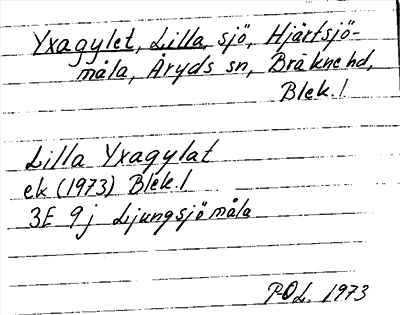 Yxagylet, Lilla, sjö, Hjärtsjö-
måla, Åryds sn, Bräkne hd,
Blek. l
Lilla Yxagylat
ek (1973) Blek. l
3E 9j Ljungsjömåla
P-OL. 1973